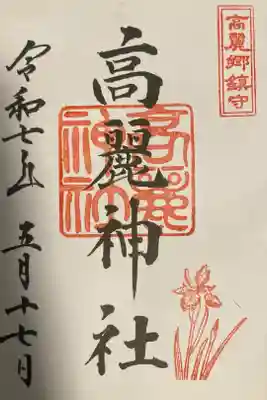 高麗郷鎮守
高麗神社
高麗神社
令和七年 五月十七日